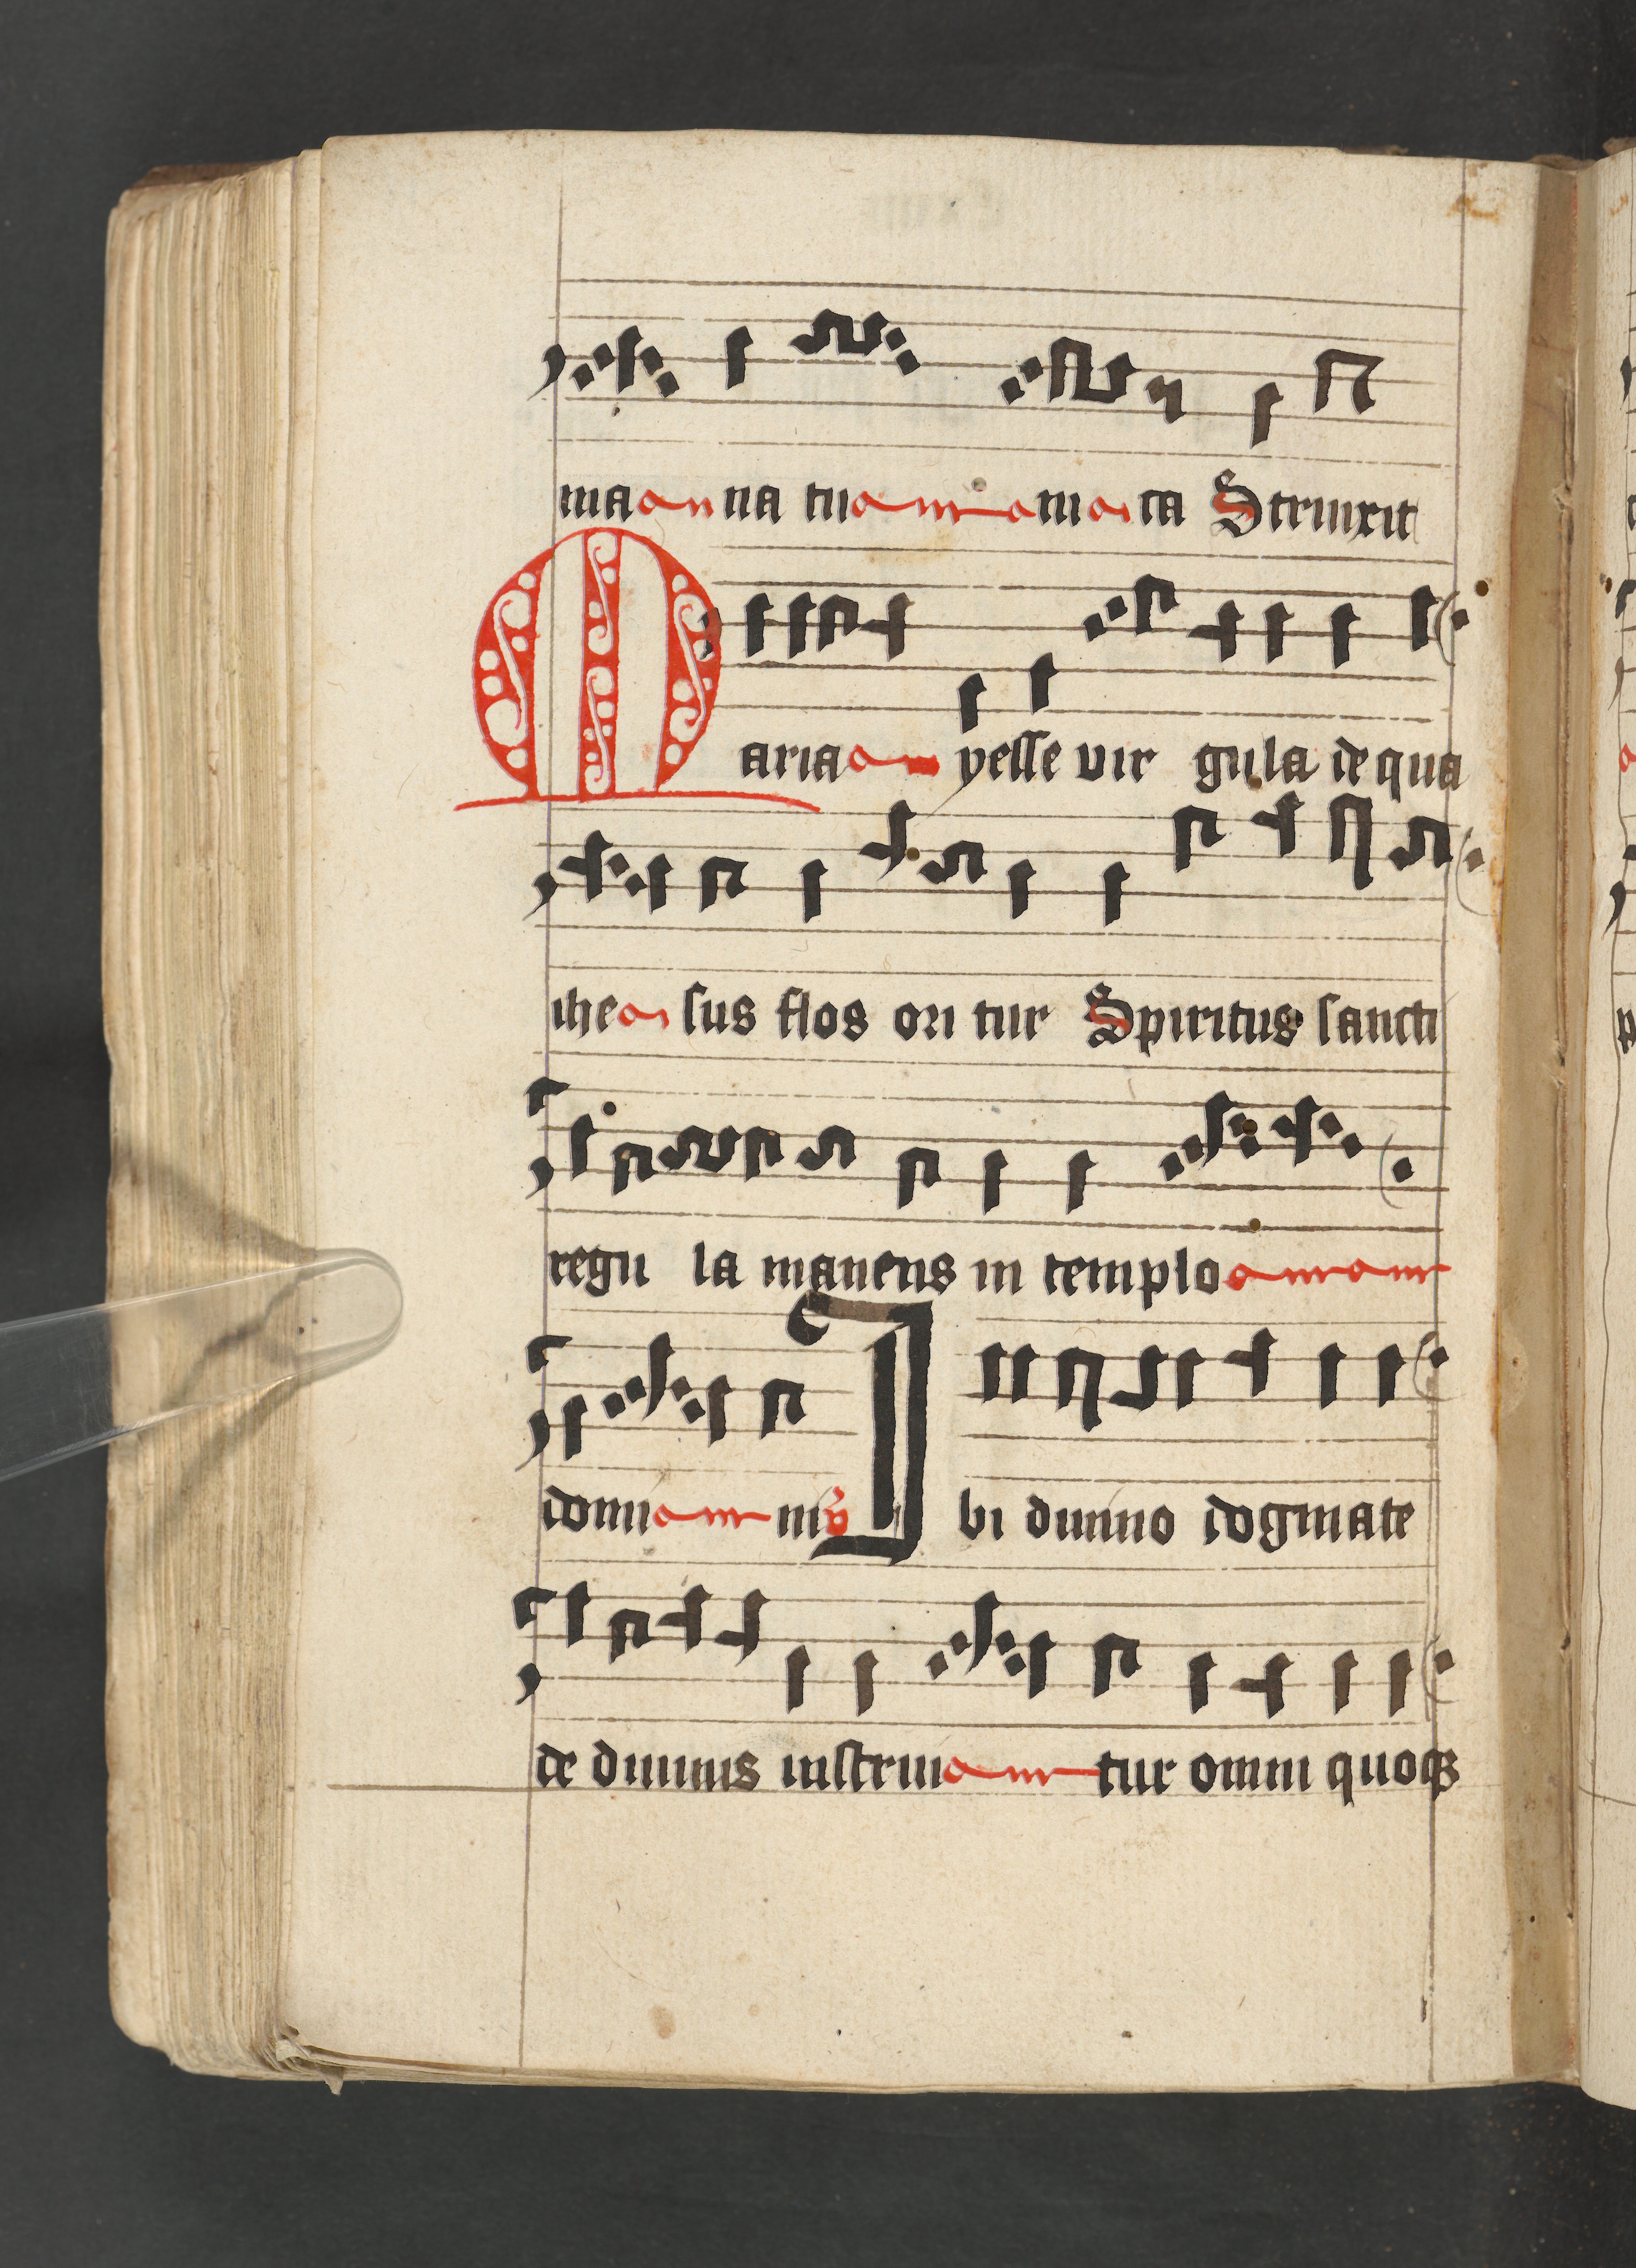 ma na tu m ta Strinxit
Maria yesse vir gula de qua
ihe sus flos ori tur Spiritus sancti
regu la manens in templo
domi ni v Ibi diuino dogmate
de diuinis instrui tur omni quoqꝫ